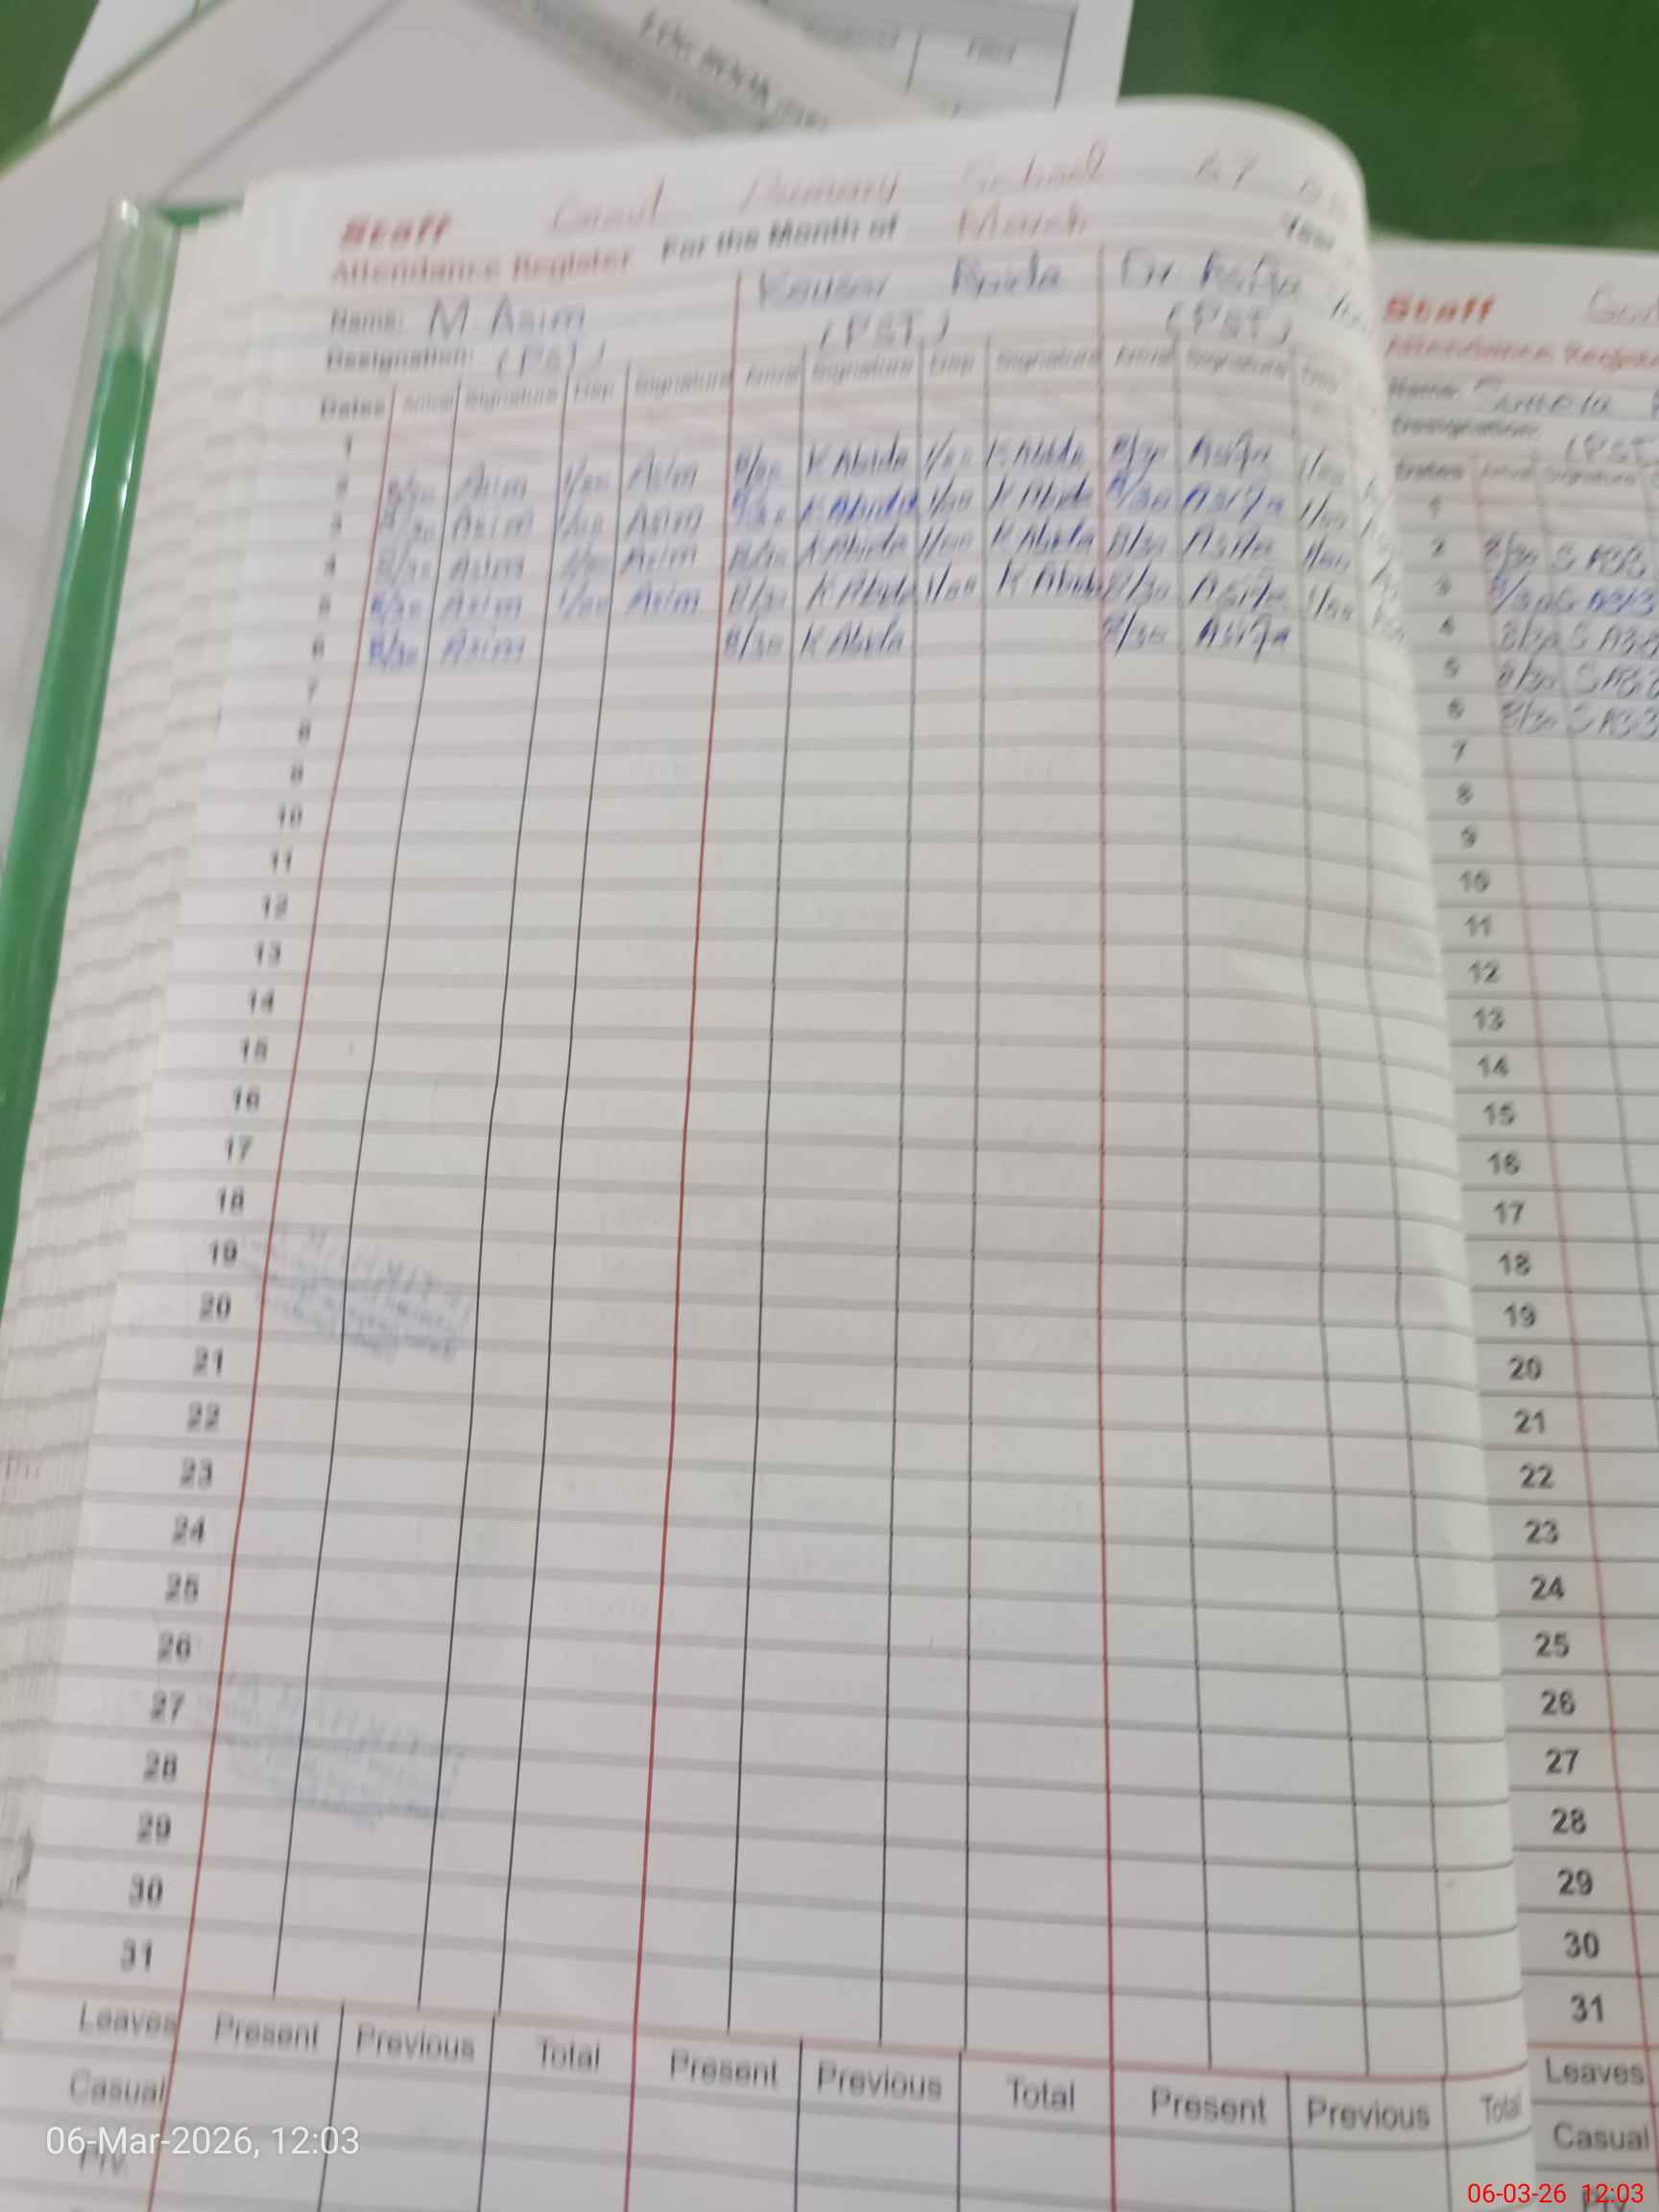 LOG BOOK
Staff Govt Primary School 67
Attendance Register For the Month of March Year
Name: M. Asim Kausar Abida
Designation: (PST) (PST) (PST)
Dates Arrival Signature Dep Signature Arrival Signature Dep Signature Arrival Signature Dep
1
2 8/30 Asim 1/00 Asim 8/30 K Abida 1/00 K Abida 8/30 Asifa 1/00
3 8/30 Asim 1/00 Asim 8/30 K Abida 1/00 K Abida 8/30 Asifa 1/00
4 8/30 Asim 1/00 Asim 8/30 K Abida 1/00 K Abida 8/30 Asifa 1/00
5 8/30 Asim 1/00 Asim 8/30 K Abida 1/00 K Abida 8/30 Asifa 1/00
6 8/30 Asim 8/30 K Abida 8/30 Asifa
7
8
9
10
11
12
13
14
15
16
17
18
19
20
21
22
23
24
25
26
27
28
29
30
31
Leaves Present Previous Total Present Previous Total Present Previous Total
Casual
Priv.
Staff
Attendance Register
Name:
Designation: (PST
Dates Arrival Signature
1
2 8/30
3 8/30
4 8/30
5 8/30
6 8/30
7
8
9
10
11
12
13
14
15
16
17
18
19
20
21
22
23
24
25
26
27
28
29
30
31
Leaves
Casual
06-Mar-2026, 12:03
06-03-26 12:03